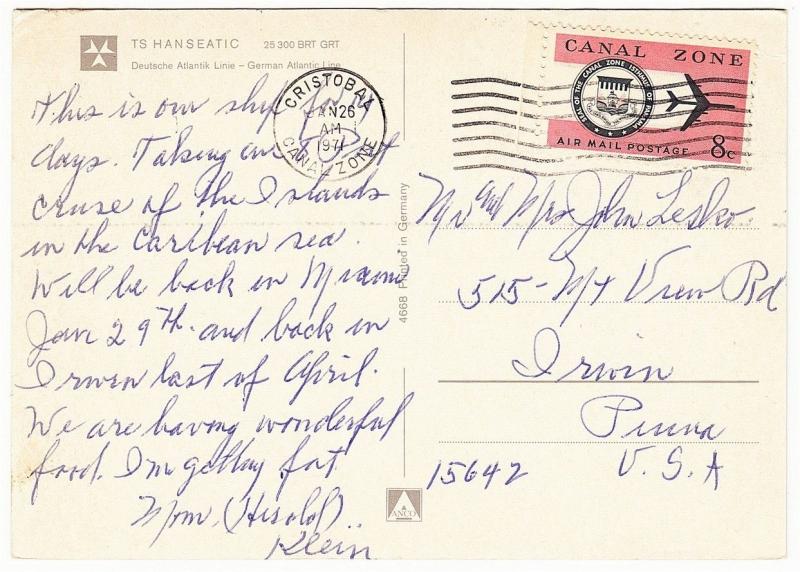 TS HANSEATIC 25 300 BRT GRT
Deutsche Atlantik Linie – German Atlantic Line
This is our ship for
days. Taking an
cruse of the Islands
in the Caribean sea.
Will be back in Miami
Jan 29th. and back in
Irwin last of April.
We are having wonderful
food. Im getting fat
Mom. (Herold)
Klein
CRISTOBAL
JAN 26
AM
1971
CANAL ZONE
4668 Printed in Germany
ANCO
CANAL ZONE
SEAL OF THE CANAL ZONE ISTHMUS OF PANAMA
AIR MAIL POSTAGE 8c
Mr and Mrs John Lesko.
515 - Mt View Rd
Irwin
Penna
15642 U.S.A